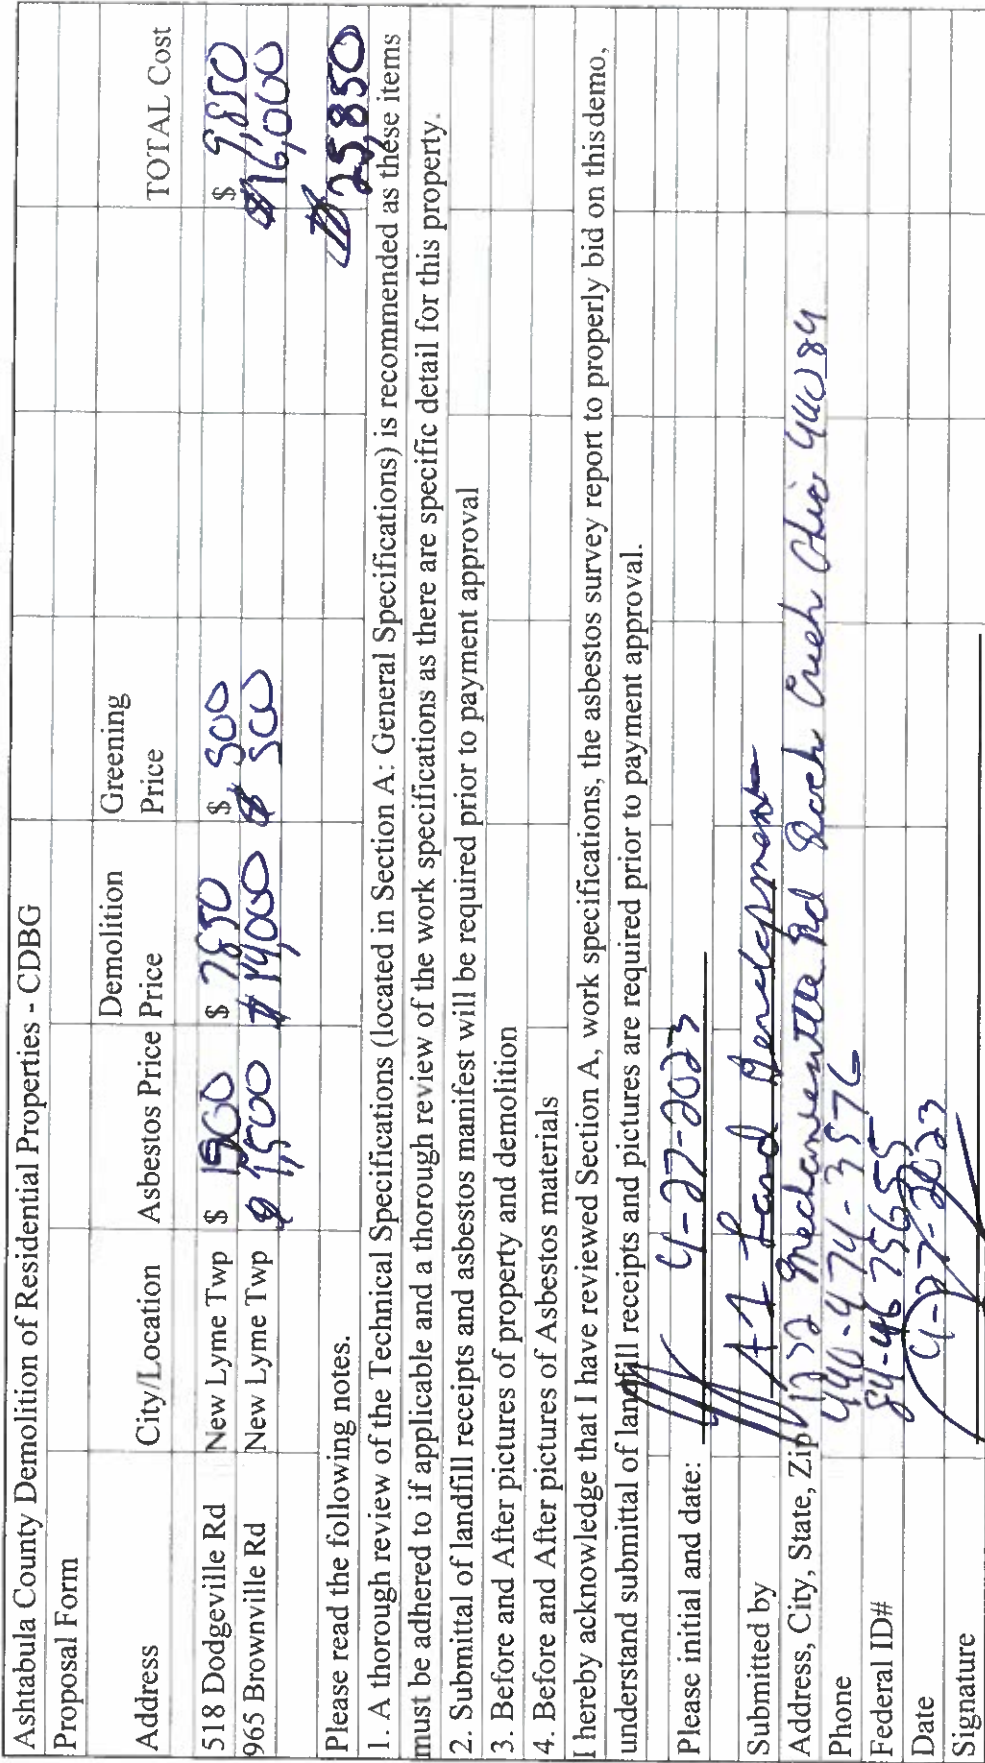 Ashtabula County Demolition of Residential Properties - CDBG
Proposal Form
Address City/Location Asbestos Price Demolition Price Greening Price TOTAL Cost
518 Dodgeville Rd New Lyme Twp $ 1500 $ 7850 $ 500 $ 9,850
965 Brownville Rd New Lyme Twp $ 1,500 $ 14,000 $ 500 $ 16,000
$ 25,850
Please read the following notes.
1. A thorough review of the Technical Specifications (located in Section A: General Specifications) is recommended as these items
must be adhered to if applicable and a thorough review of the work specifications as there are specific detail for this property.
2. Submittal of landfill receipts and asbestos manifest will be required prior to payment approval
3. Before and After pictures of property and demolition
4. Before and After pictures of Asbestos materials
I hereby acknowledge that I have reviewed Section A, work specifications, the asbestos survey report to properly bid on thisdemo,
understand submittal of landfill receipts and pictures are required prior to payment approval.
Please initial and date: 4-27-2023
Submitted by A1 Land Development
Address, City, State, Zip 1222 Mechanicsville Rd Rock Creek Ohio 44084
Phone 440-474-3576
Federal ID# 84-4675655
Date 4-27-2023
Signature